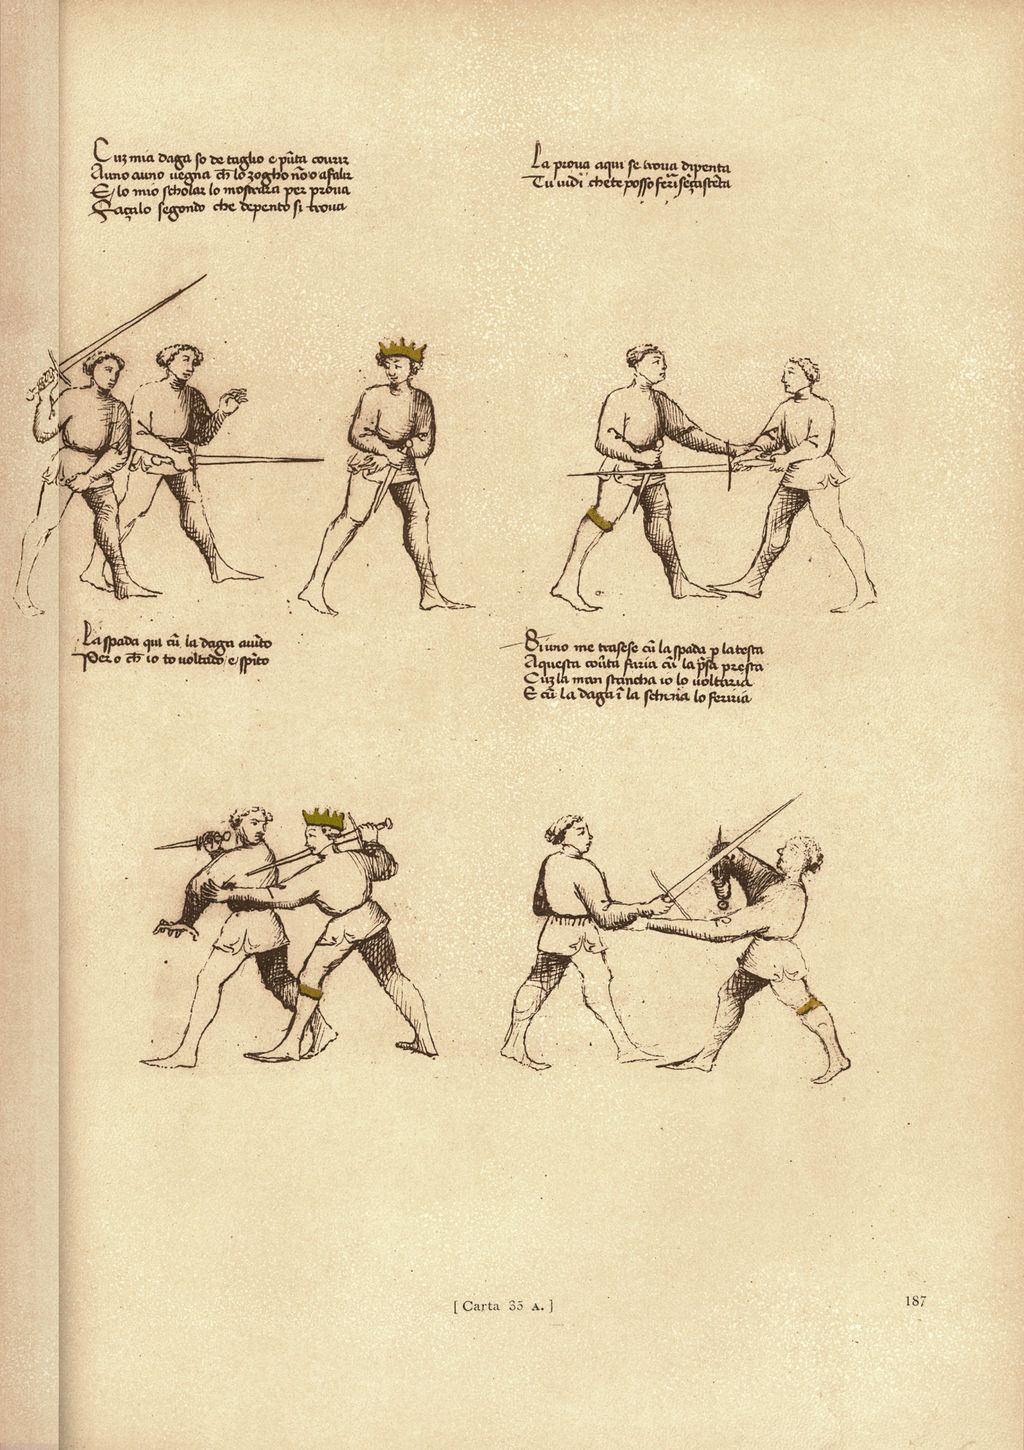 Cuz mia daga so de taglio e pūta courir
A uno a uno vegna ch̄ lo zogho nō o a falir
E lo mio scholar lo mostrara per prova
Façalo segondo che depento si trova
La prova aqui se trova dipenta
Tu vidi che te posso ferī seça stēta
La spada qui cū la daga avūto
Per o ch̄ io to voltado e spīto
Si uno me trasese cū la spada p la testa
Aquesta coūta faria cū la psa presta
Cuz la man stancha io lo voltaria
E cū la daga ī la schena lo feriria
[ Carta 35 A. ]
187